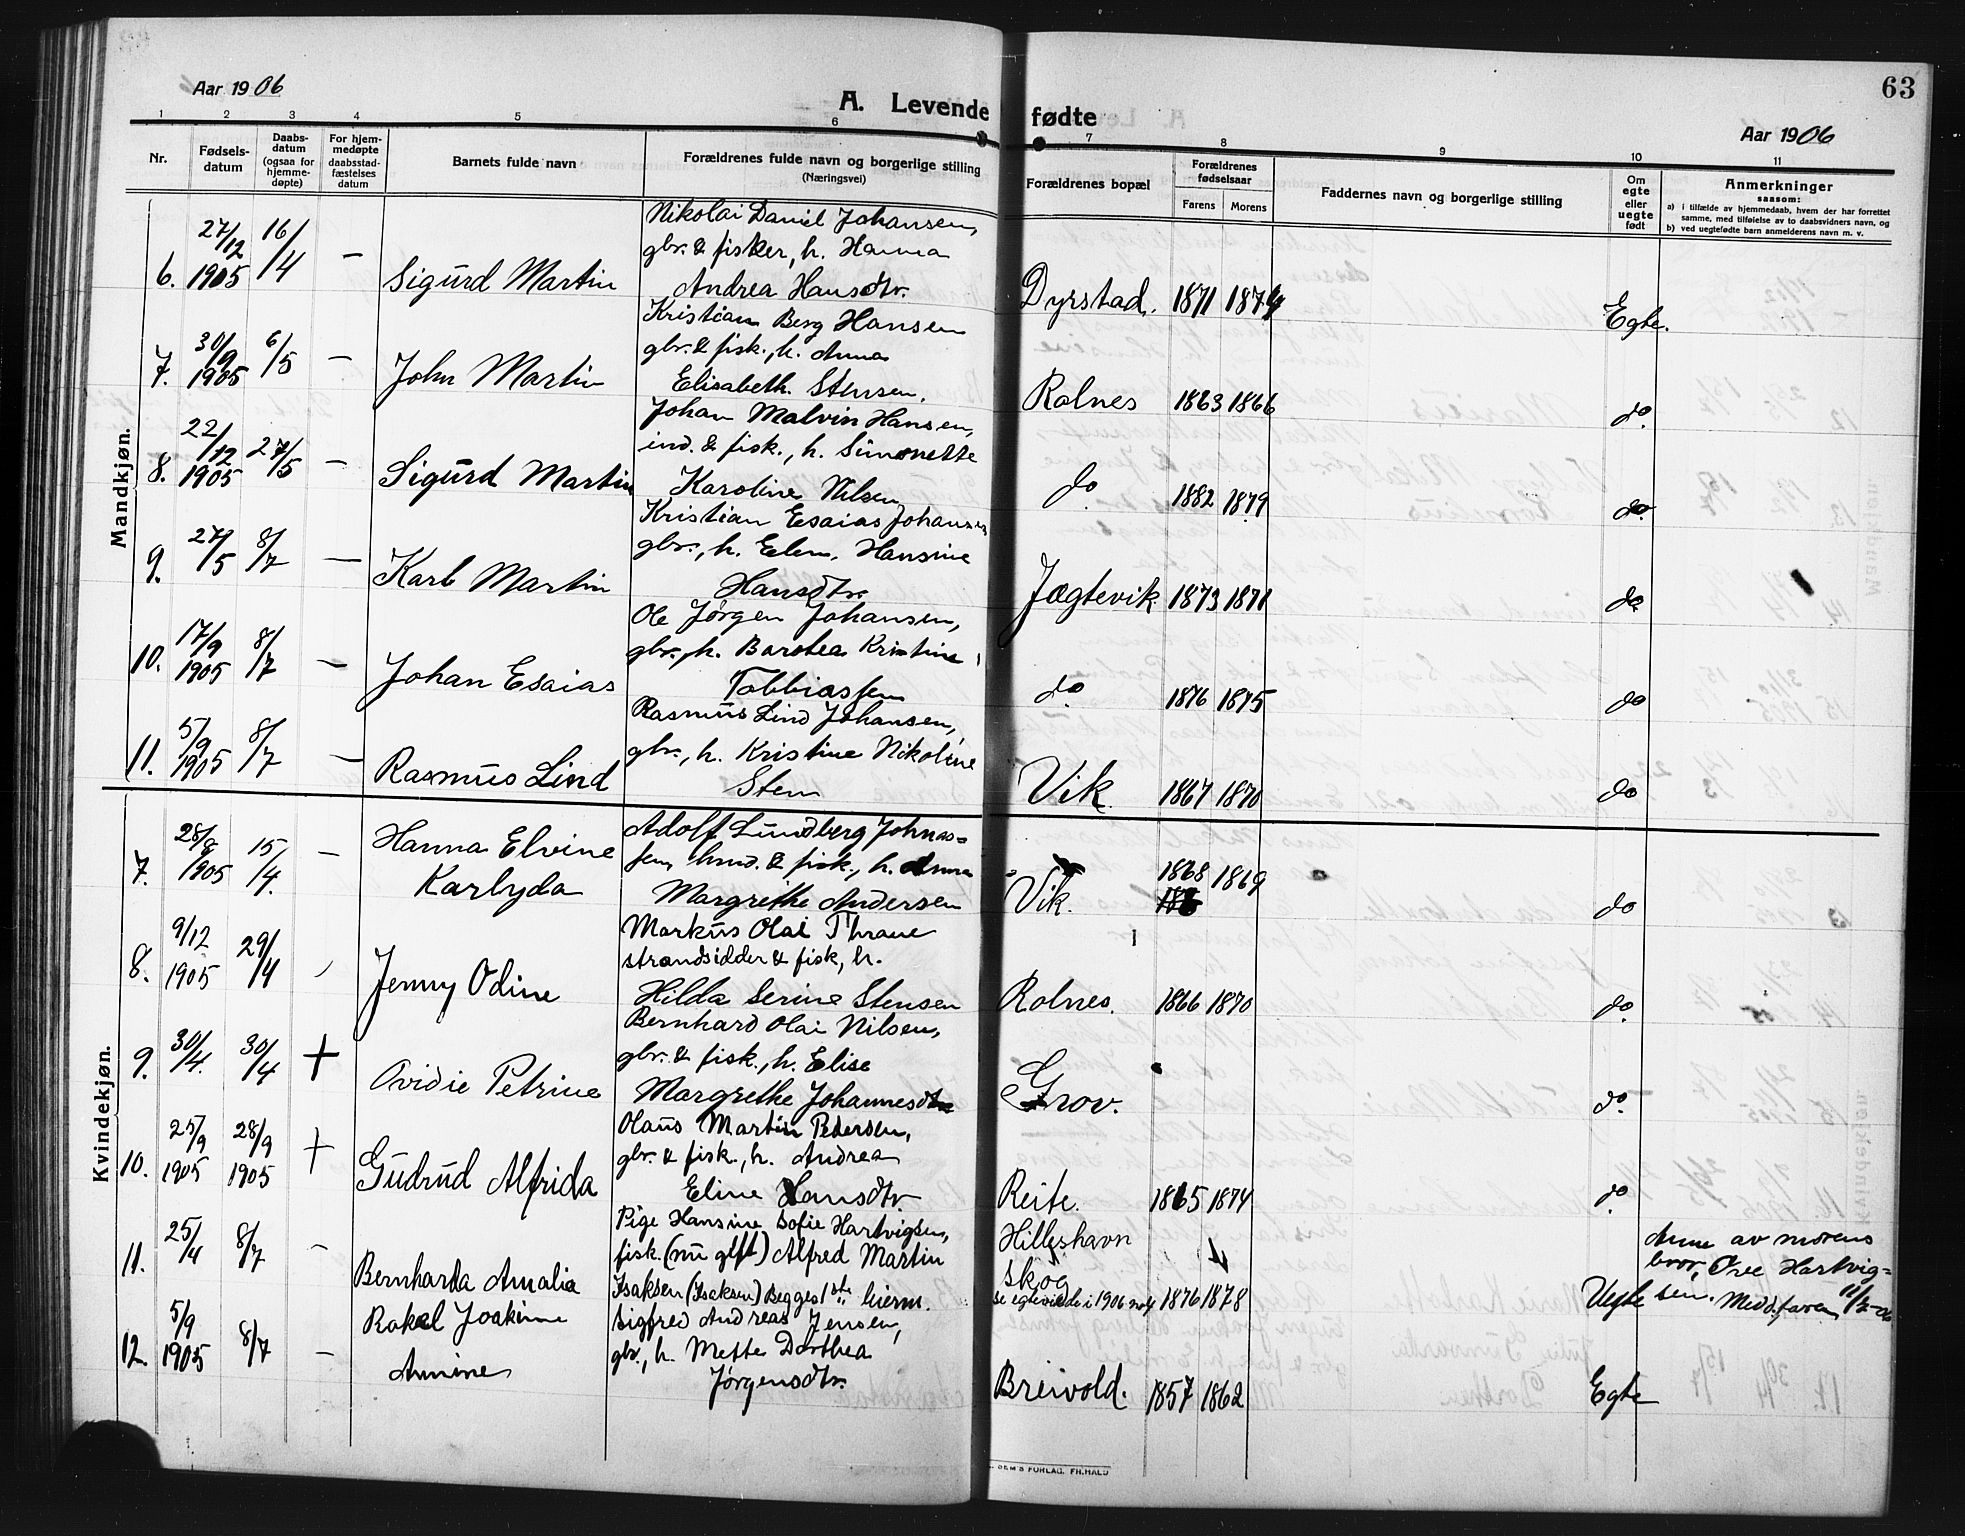 63
Aar 1906
A. Levende fødte
Aar 1906
1 2 3 4 5 6 7 8 9 10 11
Nr.
Fødsels-
datum
Daabs-
datum
(ogsaa for
hjemme-
døpte)
For hjem-
medøpte
daabsstad-
fæstelses
datum
Barnets fulde navn
Forældrenes fulde navn og borgerlige stilling
(Næringsvei)
Forældrenes bopæl
Forældrenes
fødselsaar
Farens Morens
Faddernes navn og borgerlige stilling
Om
egte
eller
uegte
født
Anmerkninger
saasom:
a) i tilfælde av hjemmedaab, hvem der har forrettet
samme, med tilføielse av to daabsvidners navn, og
b) ved uegtefødte barn anmelderens navn m. v.
Mandkjøn.
6. 27/12 1905 16/4 — Sigurd Martin
Nikolai Daniel Johansen,
gbr. & fisker, h. Hanna
Andrea Hansdtr.
Dyrstad. 1871 1874 Egte.
7. 30/9 1905 6/5 — John Martin
Kristian Berg Hansen
gbr. & fisk., h. Anna
Elisabeth Stensen.
Rolnes 1863 1866 do.
8. 22/12 1905 27/5 — Sigurd Martin
Johan Malvin Hansen,
ind. & fisk., h. Simonette
Karoline Nilsen
do. 1882 1879 do
9. 27/5 8/7 — Karl Martin
Kristian Esaias Johansen
gbr., h. Elen Hansine
Hansdtr.
Jægtevik 1873 1871 do
10. 17/9 1905 8/7 — Johan Esaias
Ole Jørgen Johansen,
gbr., h. Kristine
Tobbiassen
do 1876 1875 do
11. 5/9 1905 8/7 — Rasmus Lind
Rasmus Lind Johansen,
gbr., h. Kristine Nikoline
Sten
Vik. 1867 1870 do
Kvindekjøn.
7. 28/8 1905 15/4. — Hanna Elvine
Karlyda
Adolf Lundberg Johnas-
sen, & fisk., h. Anna
Margrethe Andersen
Vik. 1868 1869 do
8. 9/12 1905 29/4 Jenny Odine
Markus Olai Thrane
strandsidder & fisk, h.
Hilda Serine Stensen
Rolnes. 1866 1870 do.
9. 30/4. 30/4 + Ovidie Petrine
Bernhard Olai Nilsen,
gbr. & fisk., h. Elise
Margrethe Johannesdtr
Grov. do.
10. 25/9 1905 28/9 1905 + Gudrud Alfrida
Olaus Martin Pedersen,
gbr. & fisk., h. Andrea
Eline Hansdtr.
Reite. 1865 1874 do.
11. 25/4 8/7 — Bernharda Amalia
Pige Hansine Sofie Hartvigsen,
fisk. (nu gift) Alfred Martin
Isaksen (Isaksen) Begges 1ste leierm.
Hilleshavn
skog
se egteviede i 1906 no 4 1876 1878 Uegte
Anm av morens
bror, Ove Hartvig-
sen. Medd. faren
12. 5/9 1905 8/7 — Rakel Joakime
Annine
Sigfred Andreas Jensen,
gbr., h. Mette Dorthea
Jørgensdtr.
Breivold. 1857 1862 Egte
SEM'S FORLAG, FR.HALD